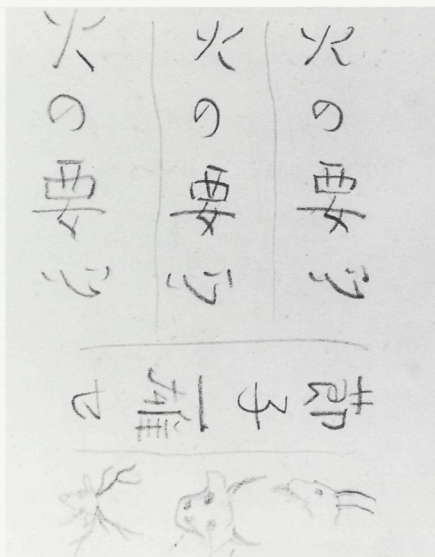 火の要心
火の要心
火の要心
節子一雄